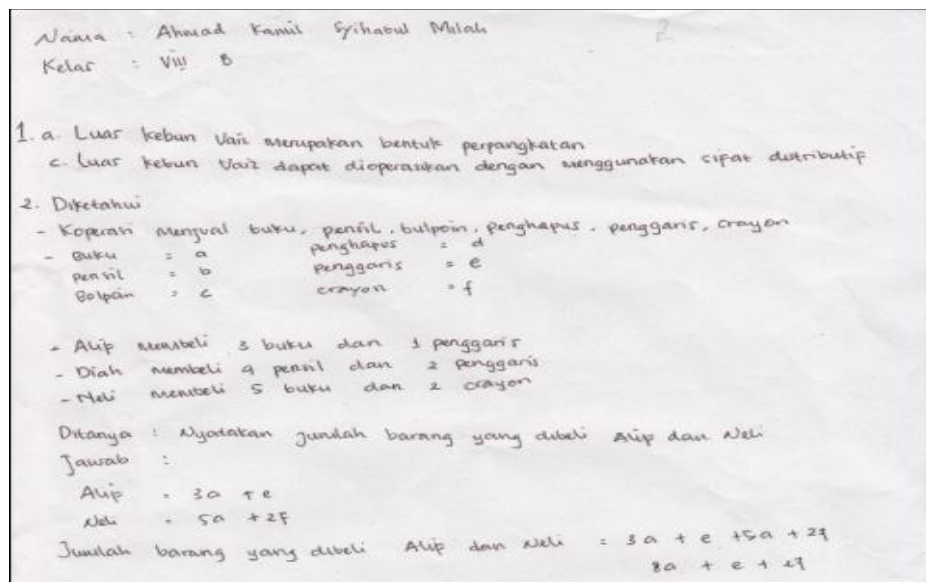 Nama : Ahmad Kamil Syihabul Milah
2
Kelas : VIII B
1. a. Luas kebun Vaiz merupakan bentuk perpangkatan
c. Luas kebun Vaiz dapat dioperasikan dengan menggunakan sifat distributif
2. Diketahui
- Koperasi menjual buku, pensil, bulpoin, penghapus, penggaris, crayon
- Buku = a penghapus = d
pensil = b penggaris = e
Bolpoin = c crayon = f
- Alip membeli 3 buku dan 1 penggaris
- Diah membeli 4 pensil dan 2 penggaris
- Neli membeli 5 buku dan 2 crayon
Ditanya : Nyatakan jumlah barang yang dibeli Alip dan Neli
Jawab :
Alip = 3a + e
Neli = 5a + 2f
Jumlah barang yang dibeli Alip dan Neli = 3a + e + 5a + 2f
8a + e + 2f